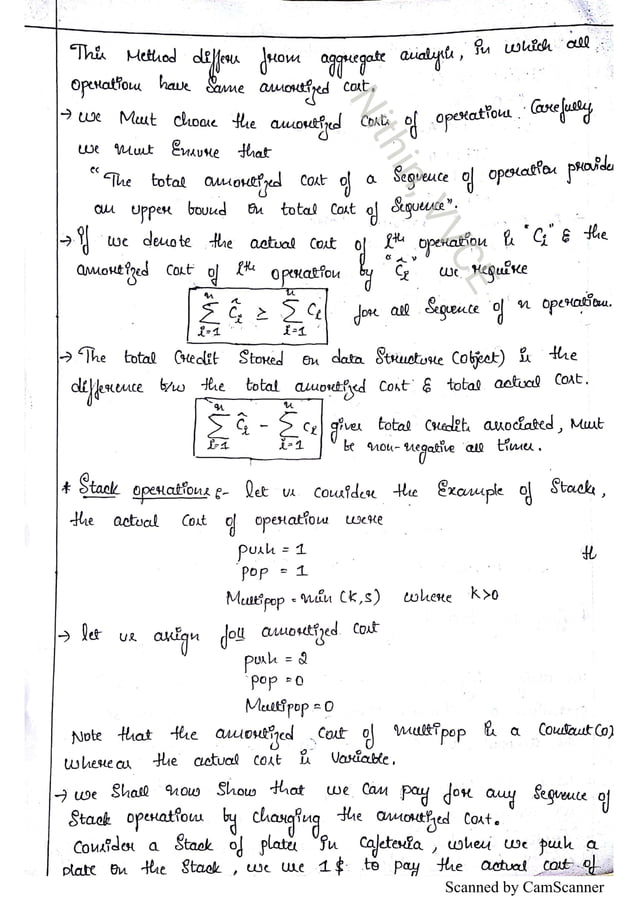 This Method differs from aggregate analysis, in which all
operations have same amortized cost.
→ we Must choose the amortized costs of operations. Carefully
we must Ensure that
"The total amortized cost of a sequence of operation provide
an upper bound on total cost of sequence".
→ If we denote the actual cost of ith operation is "Ci" & the
amortized cost of ith operation by "Ĉi" we require
n∑i=1 Ĉi ≥ n∑i=1 Ci for all sequence of n operations.
→ The total credit stored on data structure (object) is the
difference b/w the total amortized cost & total actual cost.
n∑i=1 Ĉi - n∑i=1 Ci gives total credits associated, Must
be non-negative all times.
* Stack operations :- let us consider the Example of Stacks,
the actual cost of operations were
push = 1
pop = 1
Multipop = min (k,s) where k>0
→ let us assign foll amortized cost
push = 2
pop = 0
Multipop = 0
Note that the amortized cost of multipop is a constant (0)
whereas the actual cost is variable.
→ we Shall now show that we can pay for any sequence of
Stack operations by charging the amortized cost.
Consider a Stack of plates in Cafeteria, when we push a
plate on the Stack, we use 1$ to pay the actual cost of
Nithin, VVCE
Scanned by CamScanner